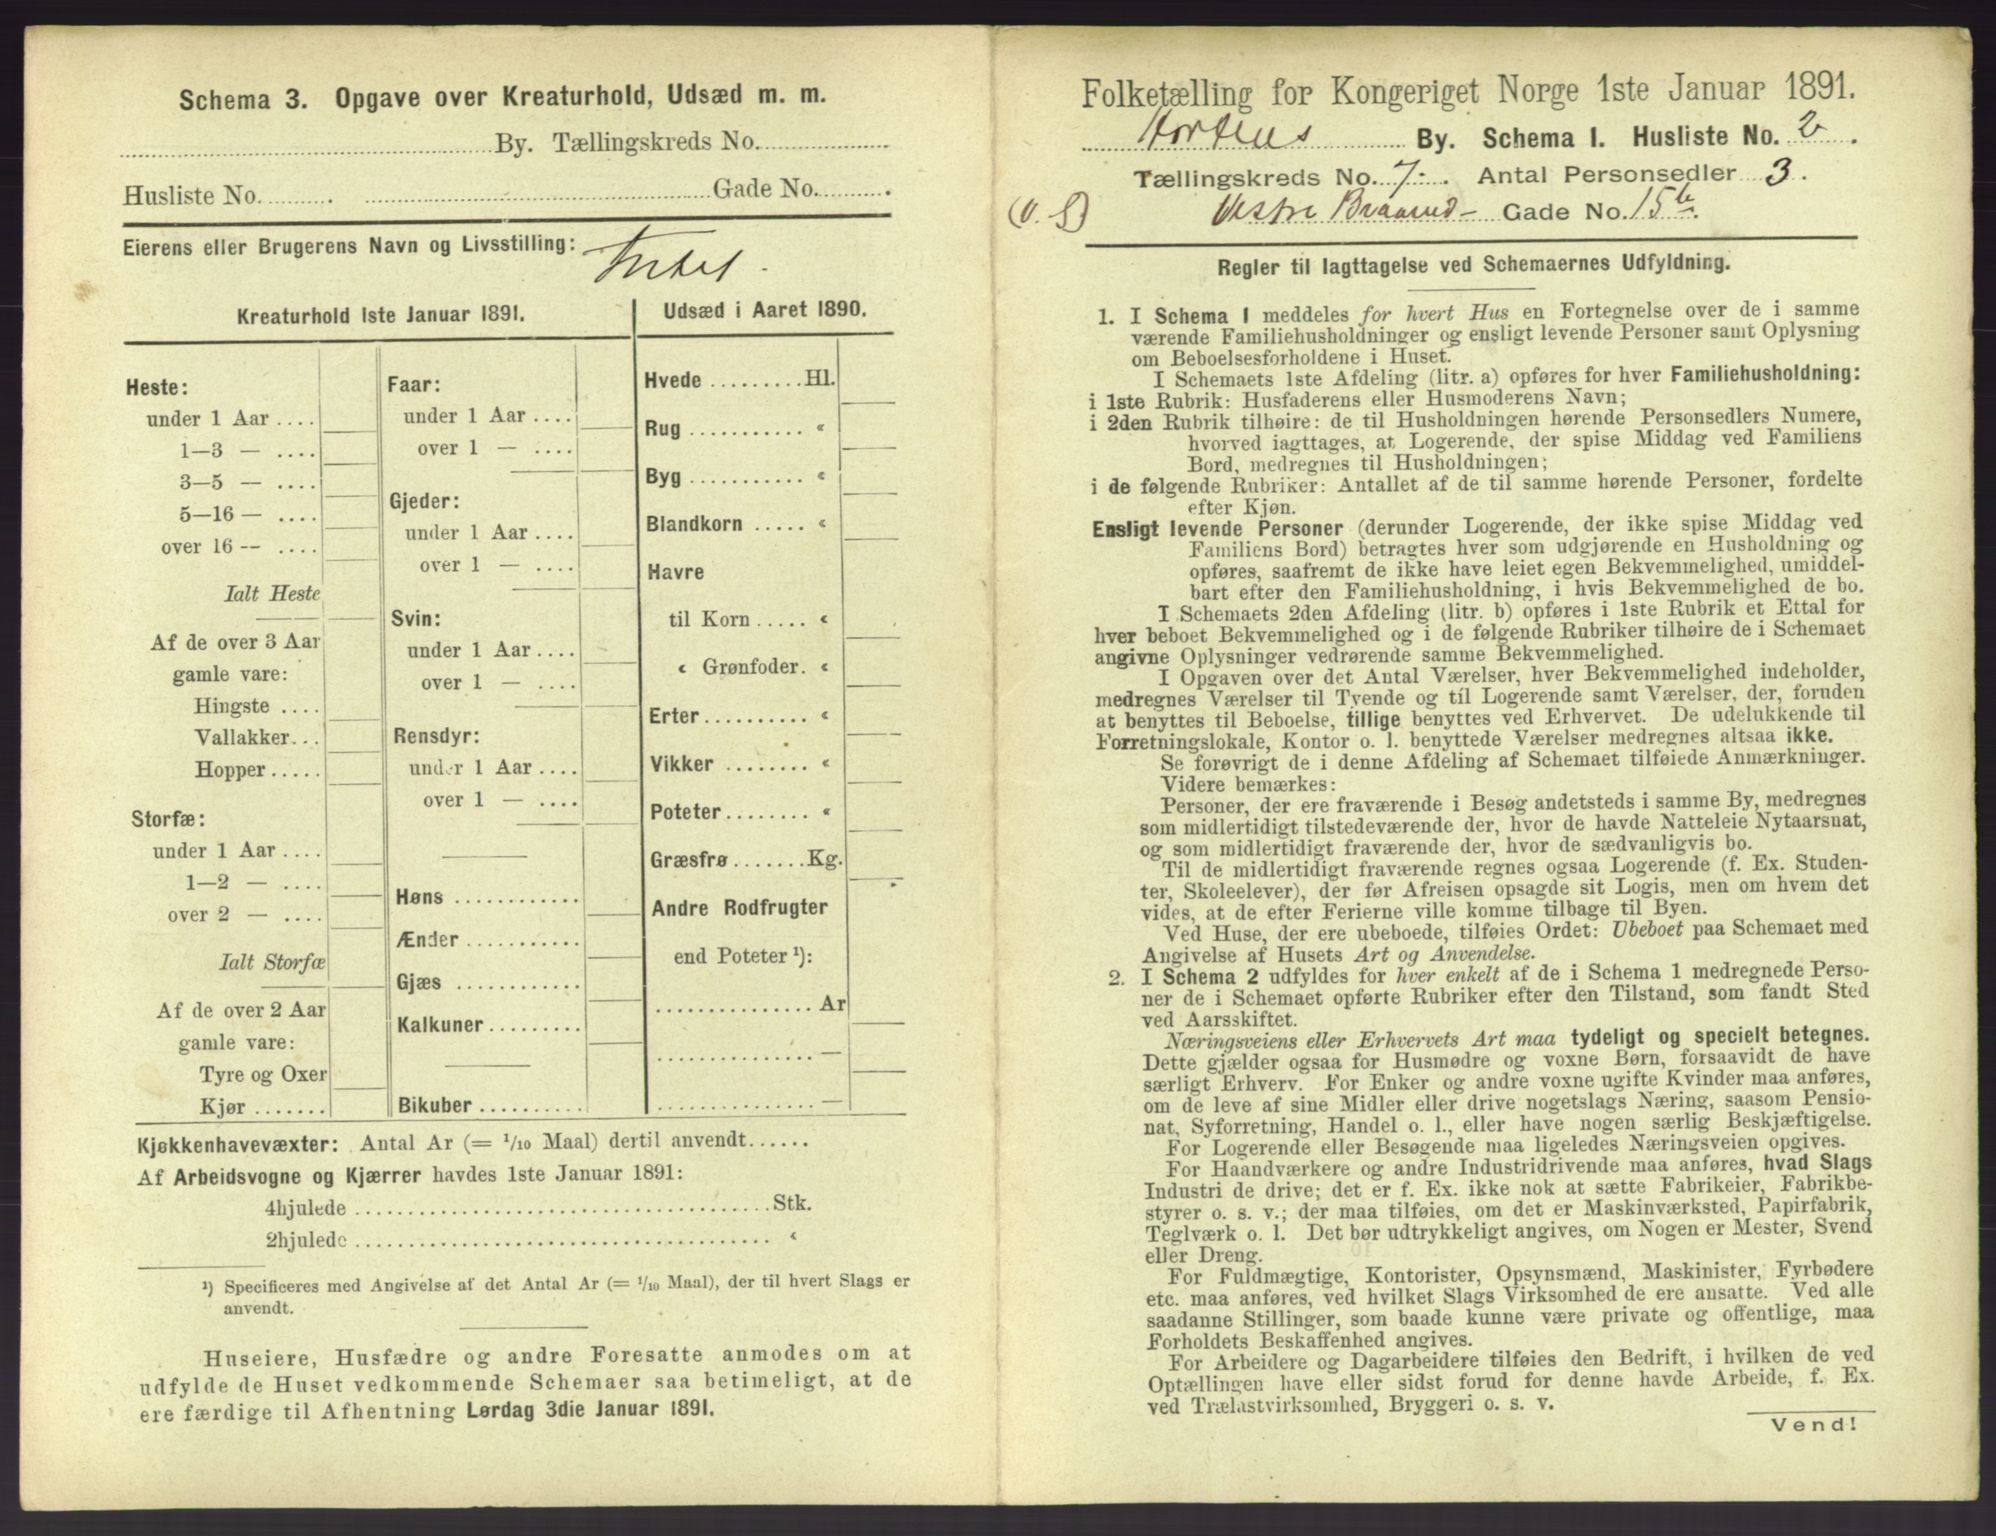 Schema 3. Opgave over Kreaturhold, Udsæd m. m.
By. Tællingskreds No.
Husliste No. Gade No.
Eierens eller Brugerens Navn og Livsstilling: Intet.
Kreaturhold 1ste Januar 1891.
Heste:
under 1 Aar
1—3 —
3—5 —
5—16 —
over 16 —
Ialt Heste
Af de over 3 Aar
gamle vare:
Hingste
Vallakker
Hopper
Storfæ:
under 1 Aar
1—2 —
over 2 —
Ialt Storfæ
Af de over 2 Aar
gamle vare:
Tyre og Oxer
Kjør
Faar:
under 1 Aar
over 1 —
Gjeder:
under 1 Aar
over 1 —
Svin:
under 1 Aar
over 1 —
Rensdyr:
under 1 Aar
over 1 —
Høns
Ænder
Gjæs
Kalkuner
Bikuber
Udsæd i Aaret 1890.
Hvede Hl.
Rug «
Byg «
Blandkorn «
Havre
til Korn «
« Grønfoder. «
Erter «
Vikker «
Poteter «
Græsfrø Kg.
Andre Rodfrugter
end Poteter ¹):
Ar
—
—
Kjøkkenhavevæxter: Antal Ar (= 1/10 Maal) dertil anvendt
Af Arbeidsvogne og Kjærrer havdes 1ste Januar 1891:
4hjulede Stk.
2hjulede «
¹) Specificeres med Angivelse af det Antal Ar (= 1/10 Maal), der til hvert Slags er
anvendt.
Huseiere, Husfædre og andre Foresatte anmodes om at
udfylde de Huset vedkommende Schemaer saa betimeligt, at de
ere færdige til Afhentning Lørdag 3die Januar 1891.
Folketælling for Kongeriget Norge 1ste Januar 1891.
Hortens By. Schema I. Husliste No. 2.
Tællingskreds No. 7. Antal Personsedler 3.
Vestre Braarud- Gade No. 15b.
Regler til Iagttagelse ved Schemaernes Udfyldning.
1. I Schema I meddeles for hvert Hus en Fortegnelse over de i samme
værende Familiehusholdninger og ensligt levende Personer samt Oplysning
om Beboelsesforholdene i Huset.
I Schemaets 1ste Afdeling (litr. a) opføres for hver Familiehusholdning:
i 1ste Rubrik: Husfaderens eller Husmoderens Navn;
i 2den Rubrik tilhøire: de til Husholdningen hørende Personsedlers Numere,
hvorved iagttages, at Logerende, der spise Middag ved Familiens
Bord, medregnes til Husholdningen;
i de følgende Rubriker: Antallet af de til samme hørende Personer, fordelte
efter Kjøn.
Ensligt levende Personer (derunder Logerende, der ikke spise Middag ved
Familiens Bord) betragtes hver som udgjørende en Husholdning og
opføres, saafremt de ikke have leiet egen Bekvemmelighed, umiddel-
bart efter den Familiehusholdning, i hvis Bekvemmelighed de bo.
I Schemaets 2den Afdeling (litr. b) opføres i 1ste Rubrik et Ettal for
hver beboet Bekvemmelighed og i de følgende Rubriker tilhøire de i Schemaet
angivne Oplysninger vedrørende samme Bekvemmelighed.
I Opgaven over det Antal Værelser, hver Bekvemmelighed indeholder,
medregnes Værelser til Tyende og til Logerende samt Værelser, der, foruden
at benyttes til Beboelse, tillige benyttes ved Erhvervet. De udelukkende til
Forretningslokale, Kontor o. l. benyttede Værelser medregnes altsaa ikke.
Se forøvrigt de i denne Afdeling af Schemaet tilføiede Anmærkninger.
Videre bemærkes:
Personer, der ere fraværende i Besøg andetsteds i samme By, medregnes
som midlertidigt tilstedeværende der, hvor de havde Natteleie Nytaarsnat,
og som midlertidigt fraværende der, hvor de sædvanligvis bo.
Til de midlertidigt fraværende regnes ogsaa Logerende (f. Ex. Studen-
ter, Skoleelever), der før Afreisen opsagde sit Logis, men om hvem det
vides, at de efter Ferierne ville komme tilbage til Byen.
Ved Huse, der ere ubeboede, tilføies Ordet: Ubeboet paa Schemaet med
Angivelse af Husets Art og Anvendelse.
2. I Schema 2 udfyldes for hver enkelt af de i Schema 1 medregnede Perso-
ner de i Schemaet opførte Rubriker efter den Tilstand, som fandt Sted
ved Aarsskiftet.
Næringsveiens eller Erhvervets Art maa tydeligt og specielt betegnes.
Dette gjælder ogsaa for Husmødre og voxne Børn, forsaavidt de have
særligt Erhverv. For Enker og andre voxne ugifte Kvinder maa anføres,
om de leve af sine Midler eller drive nogetslags Næring, saasom Pensio-
nat, Syforretning, Handel o. l., eller have nogen særlig Beskjæftigelse.
For Logerende eller Besøgende maa ligeledes Næringsveien opgives.
For Haandværkere og andre Industridrivende maa anføres, hvad Slags
Industri de drive; det er f. Ex. ikke nok at sætte Fabrikeier, Fabrikbe-
styrer o. s. v.; der maa tilføies, om det er Maskinværksted, Papirfabrik,
Teglværk o. l. Det bør udtrykkeligt angives, om Nogen er Mester, Svend
eller Dreng.
For Fuldmægtige, Kontorister, Opsynsmænd, Maskinister, Fyrbødere
etc. maa anføres, ved hvilket Slags Virksomhed de ere ansatte. Ved alle
saadanne Stillinger, som baade kunne være private og offentlige, maa
Forholdets Beskaffenhed angives.
For Arbeidere og Dagarbeidere tilføies den Bedrift, i hvilken de ved
Optællingen have eller sidst forud for denne havde Arbeide, f. Ex.
ved Trælastvirksomhed, Bryggeri o. s. v.
Vend!